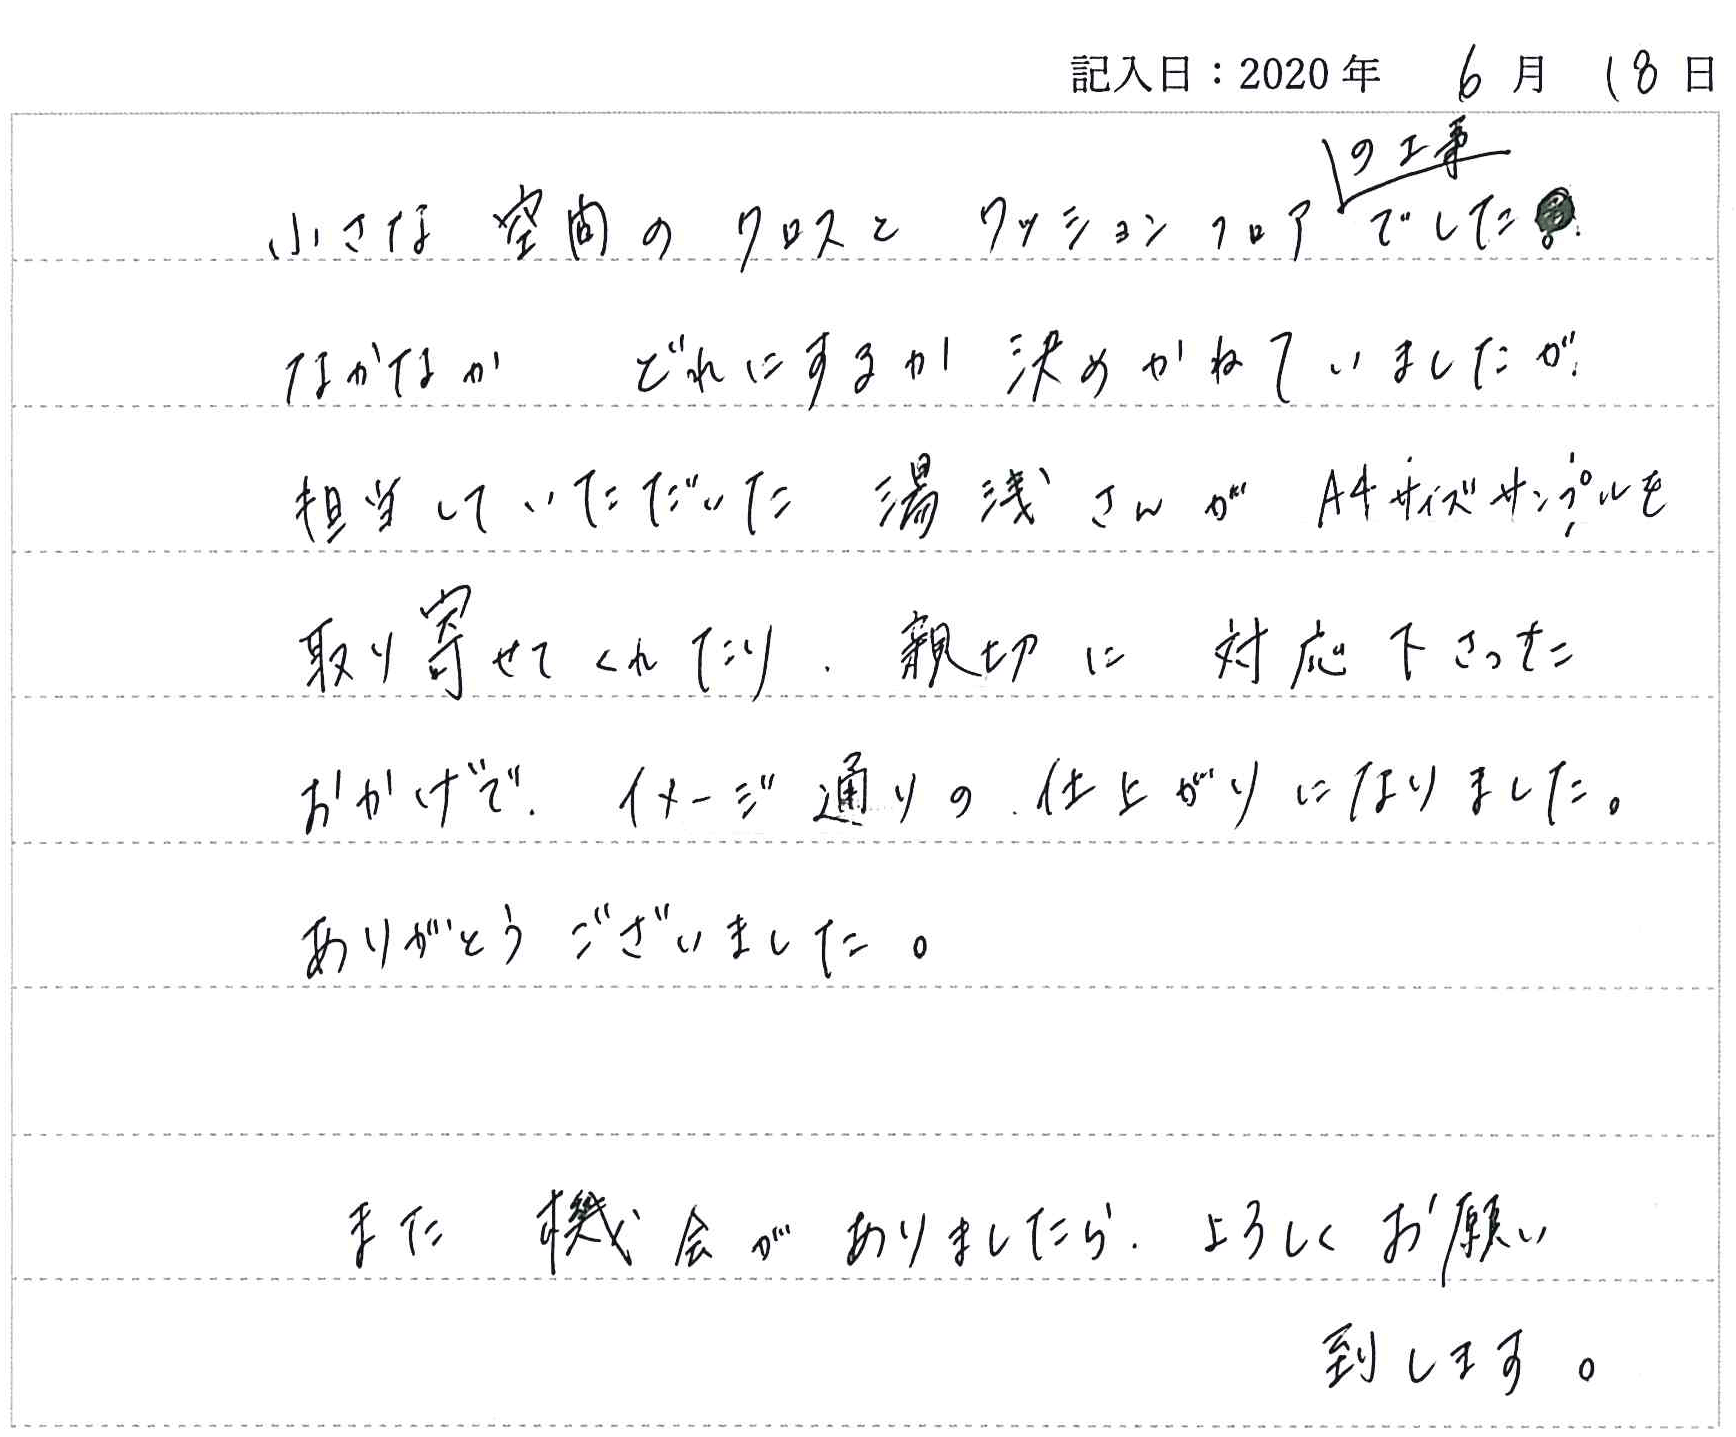 記入日：2020年 6月 18日
の工事
小さな 空間の クロスと クッションフロア でした。
なかなか どれにするか 決めかねていましたが、
担当していただいた 湯浅さんが A4サイズサンプルを
取り寄せてくれたり、親切に 対応下さった
おかげで、イメージ通りの 仕上がりになりました。
ありがとうございました。
また 機会がありましたら、よろしくお願い
到します。